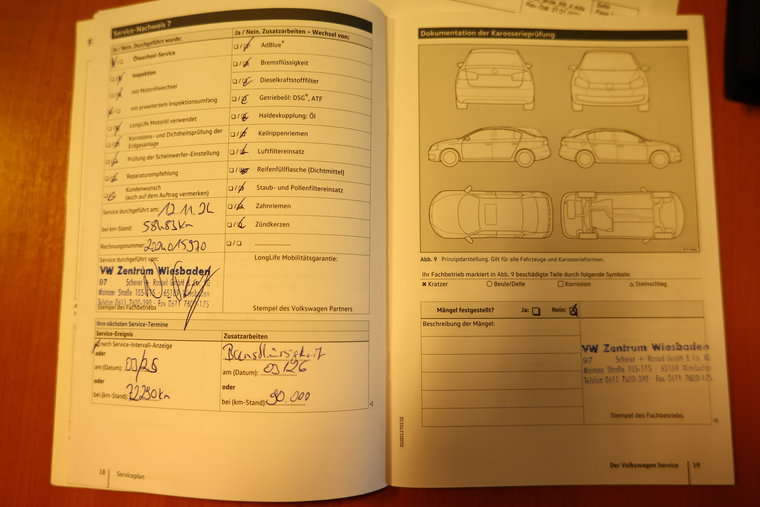 Service-Nachweis 7
Ja / Nein. Durchgeführt wurde:
Ölwechsel-Service
Inspektion
mit Motorölwechsel
mit erweitertem Inspektionsumfang
LongLife Motoröl verwendet
Korrosions- und Dichtheitsprüfung der
Endgasanlage
Prüfung der Scheinwerfer-Einstellung
Reparaturempfehlung
Kundenwunsch
(auch auf dem Auftrag vermerken)
Service durchgeführt am: 12.11.24
bei km-Stand: 58483 km
Rechnungsnummer:
Service durchgeführt von:
VW Zentrum Wiesbaden
97
Mainzer Straße 105-175 · 65189 Wiesbaden
Telefon 0611 7600-390 · Fax 0611 7600-175
Stempel des Fachbetriebs
Ja / Nein. Zusatzarbeiten – Wechsel von:
AdBlue®
Bremsflüssigkeit
Dieselkraftstofffilter
Getriebeöl: DSG®, ATF
Haldexkupplung: Öl
Keilrippenriemen
Luftfiltereinsatz
Reifenfüllflasche (Dichtmittel)
Staub- und Pollenfiltereinsatz
Zahnriemen
Zündkerzen
LongLife Mobilitätsgarantie:
Stempel des Volkswagen Partners
Ihre nächsten Service-Termine
Service-Ereignis
nach Service-Intervall-Anzeige
oder
am (Datum):
oder
bei (km-Stand):
Zusatzarbeiten
Bremsflüssigkeit
am (Datum): 03/26
oder
bei (km-Stand): 90.000
18
Serviceplan
Dokumentation der Karosserieprüfung
Abb. 9 Prinzipdarstellung. Gilt für alle Fahrzeuge und Karosserieformen.
Ihr Fachbetrieb markiert in Abb. 9 beschädigte Teile durch folgende Symbole:
Kratzer
Beule/Delle
Korrosion
Steinschlag
Mängel festgestellt? Ja: Nein:
Beschreibung der Mängel:
VW Zentrum Wiesbaden
97 Scherer + Rossel GmbH & Co. KG
Mainzer Straße 105-175 · 65189 Wiesbaden
Telefon 0611 7600-390 · Fax 0611 7600-175
Stempel des Fachbetriebs
3G0012701SE
Der Volkswagen Service
19